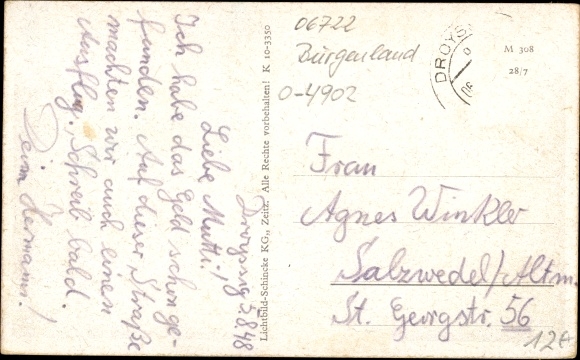 Droyssig 2.8.48
Liebe Mutti!
Ich habe das Geld schon ge-
funden. Auf dieser Straße
machten wir auch einen
Ausflug. Schreib bald.
Dein Hermann!
Lichtbild-Schincke KG., Zeitz. Alle Rechte vorbehalten! K 10-3350
06722
Burgenland
0-4902
DROYS
M 308
28/7
Frau
Agnes Winkler
Salzwedel/Altm.
St. Georgstr. 56
12€